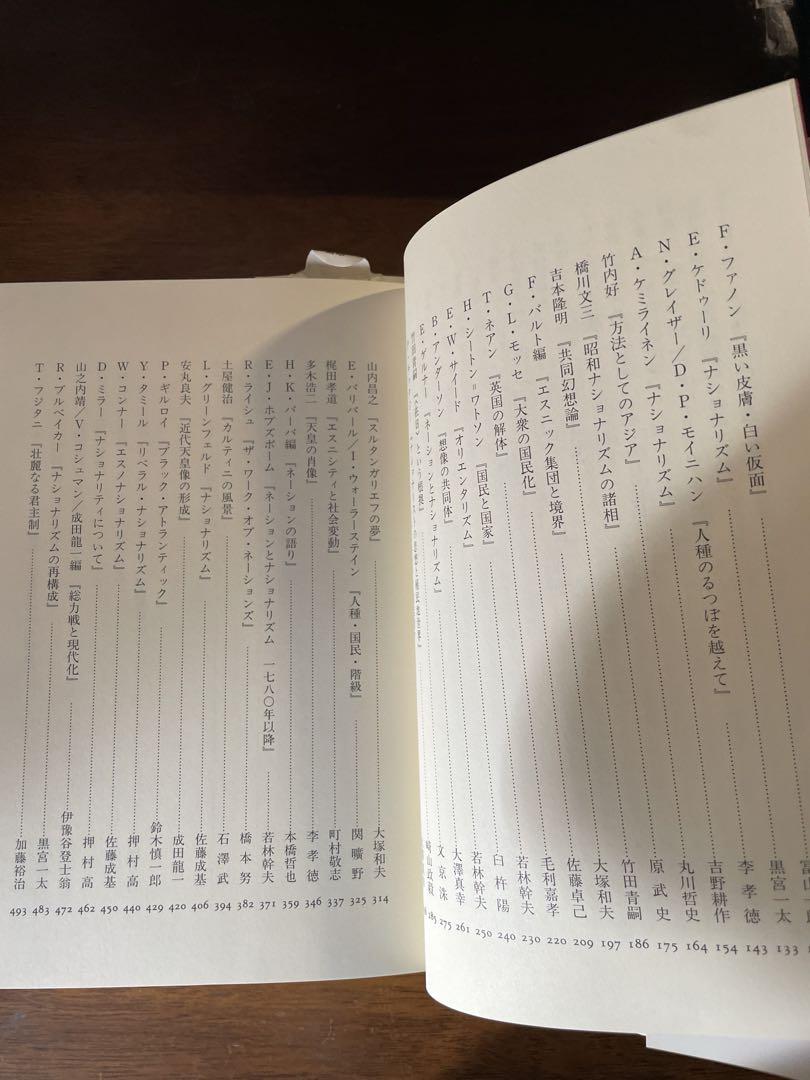 F・ファノン『黒い皮膚・白い仮面』
E・ケドゥーリ『ナショナリズム』………黒宮一太 133
N・グレイザー／D・P・モイニハン『人種のるつぼを越えて』………李孝徳 143
A・ケミライネン『ナショナリズム』………吉野耕作 154
竹内好『方法としてのアジア』………丸川哲史 164
橋川文三『昭和ナショナリズムの諸相』………原武史 175
吉本隆明『共同幻想論』………竹田青嗣 186
F・バルト編『エスニック集団と境界』………大塚和夫 197
G・L・モッセ『大衆の国民化』………佐藤卓己 209
T・ネアン『英国の解体』………毛利嘉孝 220
H・シートン＝ワトソン『国民と国家』………若林幹夫 230
E・W・サイード『オリエンタリズム』………臼杵陽 240
B・アンダーソン『想像の共同体』………若林幹夫 250
E・ゲルナー『ネーションとナショナリズム』………大澤真幸 261
という根拠』………文京洙 275
崎山政毅 285
山内昌之『スルタンガリエフの夢』………大塚和夫 314
E・バリバール／I・ウォーラーステイン『人種・国民・階級』………関曠野 325
梶田孝道『エスニシティと社会変動』………町村敬志 337
多木浩二『天皇の肖像』………李孝徳 346
H・K・バーバ編『ネーションの語り』………本橋哲也 359
E・J・ホブズボーム『ネーションとナショナリズム 一七八〇年以降』………若林幹夫 371
R・ライシュ『ザ・ワーク・オブ・ネーションズ』………橋本努 382
土屋健治『カルティニの風景』………石澤武 394
L・グリーンフェルド『ナショナリズム』………佐藤成基 406
安丸良夫『近代天皇像の形成』………成田龍一 420
P・ギルロイ『ブラック・アトランティック』………鈴木慎一郎 429
Y・タミール『リベラル・ナショナリズム』………押村高 440
W・コンナー『エスノナショナリズム』………佐藤成基 450
D・ミラー『ナショナリティについて』………押村高 462
山之内靖／V・コシュマン／成田龍一編『総力戦と現代化』………伊豫谷登士翁 472
R・ブルベイカー『ナショナリズムの再構成』………黒宮一太 483
T・フジタニ『壮麗なる君主制』………加藤裕治 493